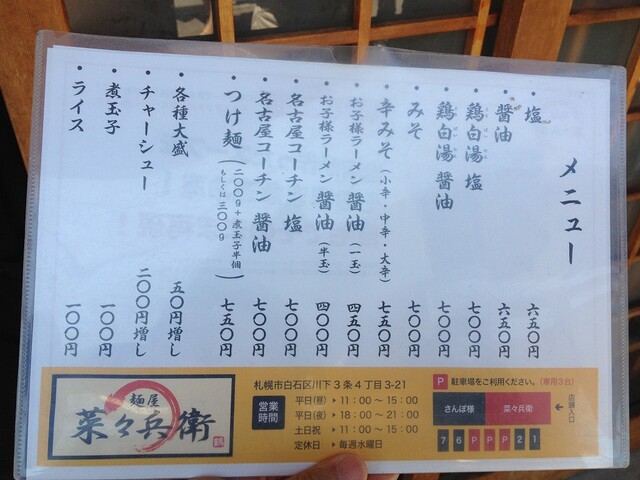 メニュー
・塩 六五〇円
・醤油 六五〇円
・鶏白湯 塩 七〇〇円
・鶏白湯 醤油 七〇〇円
・みそ 七〇〇円
・辛みそ（小辛・中辛・大辛） 七五〇円
・お子様ラーメン 醤油（一玉） 四五〇円
・お子様ラーメン 醤油（半玉） 四〇〇円
・名古屋コーチン 塩 七〇〇円
・名古屋コーチン 醤油 七〇〇円
・つけ麺（二〇〇g+煮玉子半個 もしくは三〇〇g） 七五〇円
・各種大盛 五〇円増し
・チャーシュー 二〇〇円増し
・煮玉子 一〇〇円
・ライス 一〇〇円
麺屋
菜々兵衛
札幌市白石区川下3条4丁目3-21
営業時間
平日(昼) ▶ 11:00 〜 15:00
平日(夜) ▶ 18:00 〜 21:00
土日祝 ▶ 11:00 〜 15:00
定休日 ▶ 毎週水曜日
P 駐車場をご利用ください。（専用3台）
さんぱ様 菜々兵衛
7 6 P P P 2 1
← 店舗入口